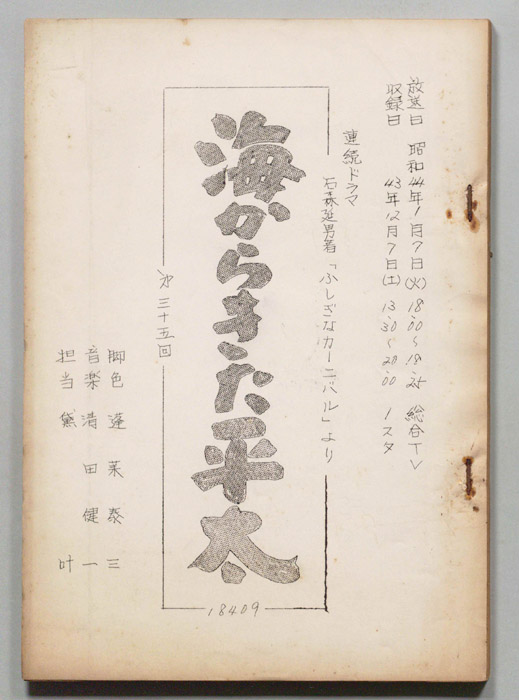 放送日 昭和44年1月7日(火) 18.00～18.25 総合TV
収録日 43年12月7日(土) 13.30～20.00 1スタ
連続ドラマ
石森延男著「ふしぎなカーニバル」より
海からきた平太
第三十五回
18409
脚色 蓬莱泰三
音楽 清田健一
担当 黛叶